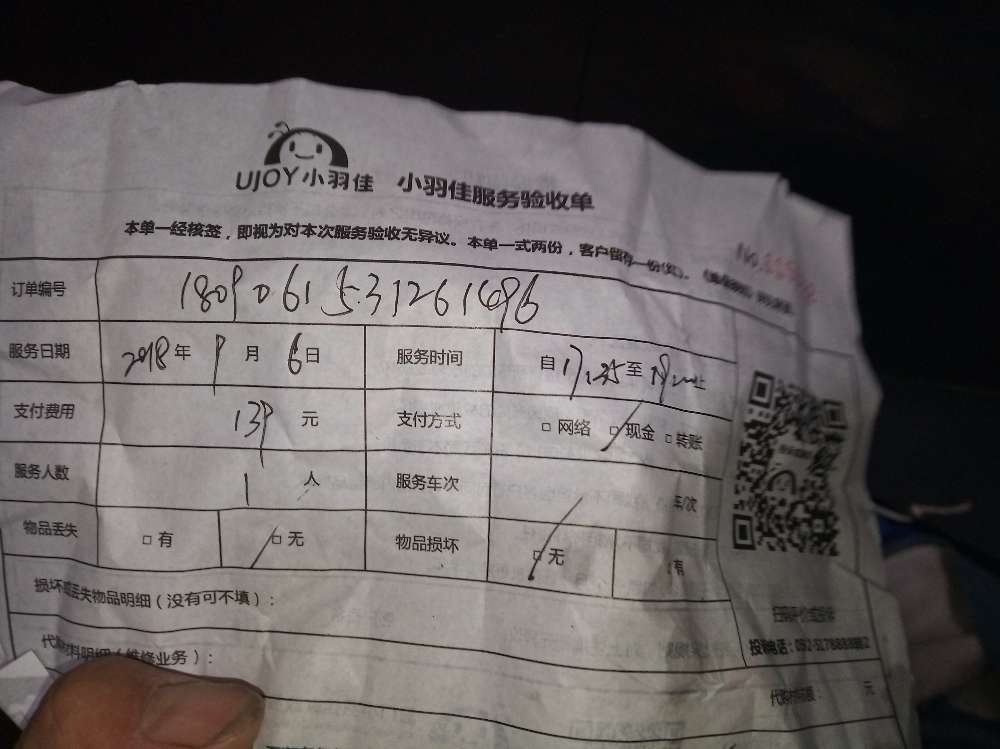 UJOY小羽佳 小羽佳服务验收单
本单一经核签，即视为对本次服务验收无异议。本单一式两份，客户留存一份
订单编号 1809061531261496
服务日期 2018年9月6日 服务时间 自17:25至19:
支付费用 139元 支付方式 □网络 □现金 □转账
服务人数 1人 服务车次 车/次
物品丢失 □有 □无 物品损坏 □无 有
损坏或丢失物品明细（没有可不填）：
投诉电话:
代购材料明细（维修业务）：
元